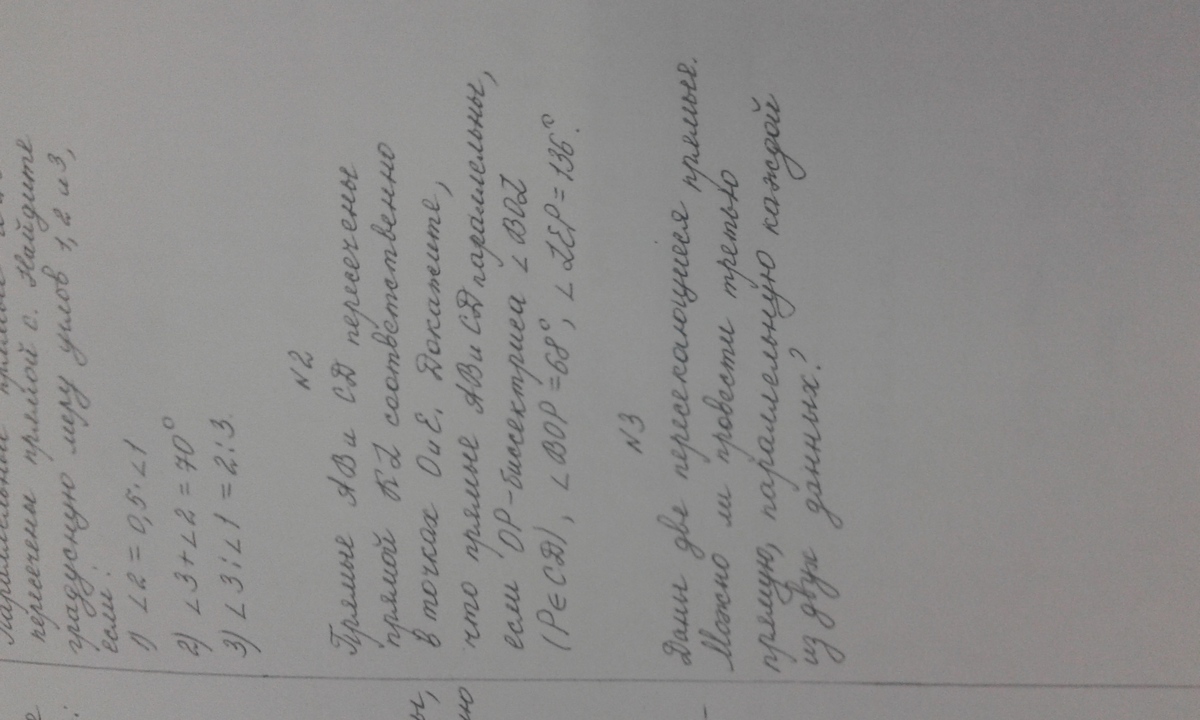 Параллельные прямые
пересечены прямой с. Найдите
градусную меру углов 1, 2 и 3,
если:
1) ∠2 = 0,5·∠1
2) ∠3+∠2 = 70°
3) ∠3:∠1 = 2:3.
N2
Прямые АВ и СД пересечены
прямой KL соответственно
в точках О и Е. Докажите,
что прямые АВ и СД параллельны,
если ОР-биссектриса ∠BOL
(Р∈СД), ∠ВОР = 68°, ∠LEP = 136°.
N3
Даны две пересекающиеся прямые.
Можно ли провести третью
прямую, параллельную каждой
из двух данных?